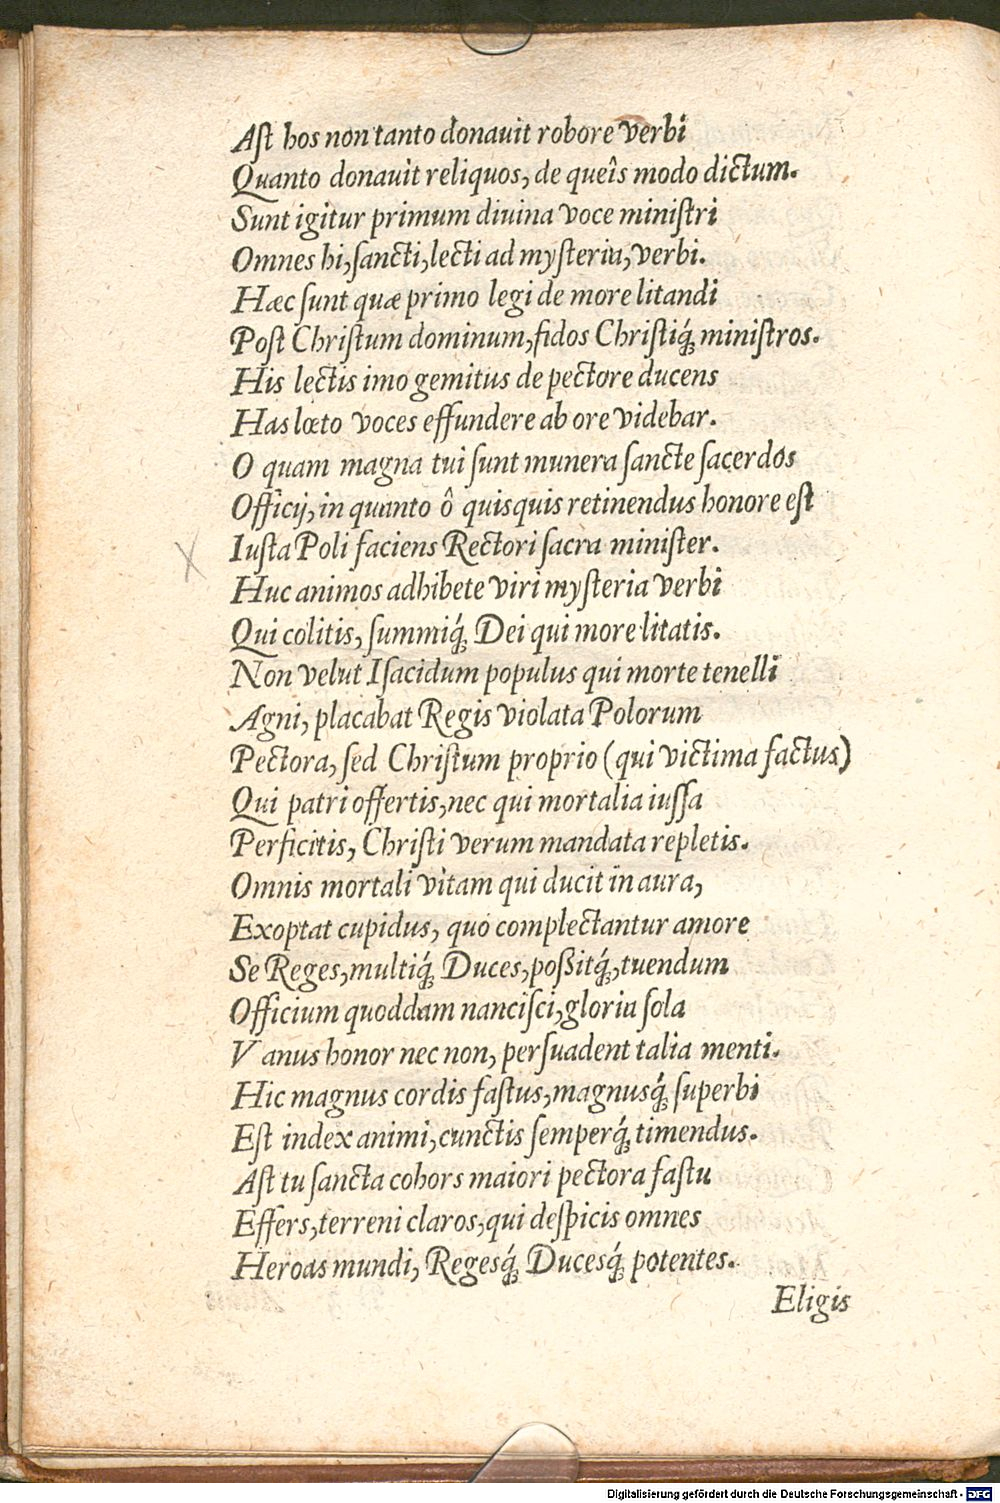 Aſt hos non tanto donauit robore verbi
Quanto donauit reliquos, de queîs modo dictum.
Sunt igitur primum diuina voce miniſtri
Omnes hi, ſancti, lecti ad myſteria, verbi.
Hæc ſunt quæ primo legi de more litandi
Poſt Chriſtum dominum, fidos Chriſtiq́; miniſtros.
His lectis imo gemitus de pectore ducens
Has lœto voces effundere ab ore videbar.
O quam magna tui ſunt munera ſancte ſacerdos
Officij, in quanto ô quisquis retinendus honore eſt
Iuſta Poli faciens Rectori ſacra miniſter.
Huc animos adhibete viri myſteria verbi
Qui colitis, ſummiq́; Dei qui more litatis.
Non velut Iſacidum populus qui morte tenelli
Agni, placabat Regis violata Polorum
Pectora, ſed Chriſtum proprio (qui victima factus)
Qui patri offertis, nec qui mortalia iuſſa
Perficitis, Chriſti verum mandata repletis.
Omnis mortali vitam qui ducit in aura,
Exoptat cupidus, quo complectantur amore
Se Reges, multiq́; Duces, poßitq́;, tuendum
Officium quoddam nanciſci, gloria ſola
V anus honor nec non, perſuadent talia menti.
Hic magnus cordis faſtus, magnusq́; ſuperbi
Eſt index animi, cunctis ſemperq́; timendus.
Aſt tu ſancta cohors maiori pectora faſtu
Effers, terreni claros, qui deſpicis omnes
Heroas mundi, Regesq́; Ducesq́; potentes.
Eligis
Digitalisierung gefördert durch die Deutsche Forschungsgemeinschaft - DFG